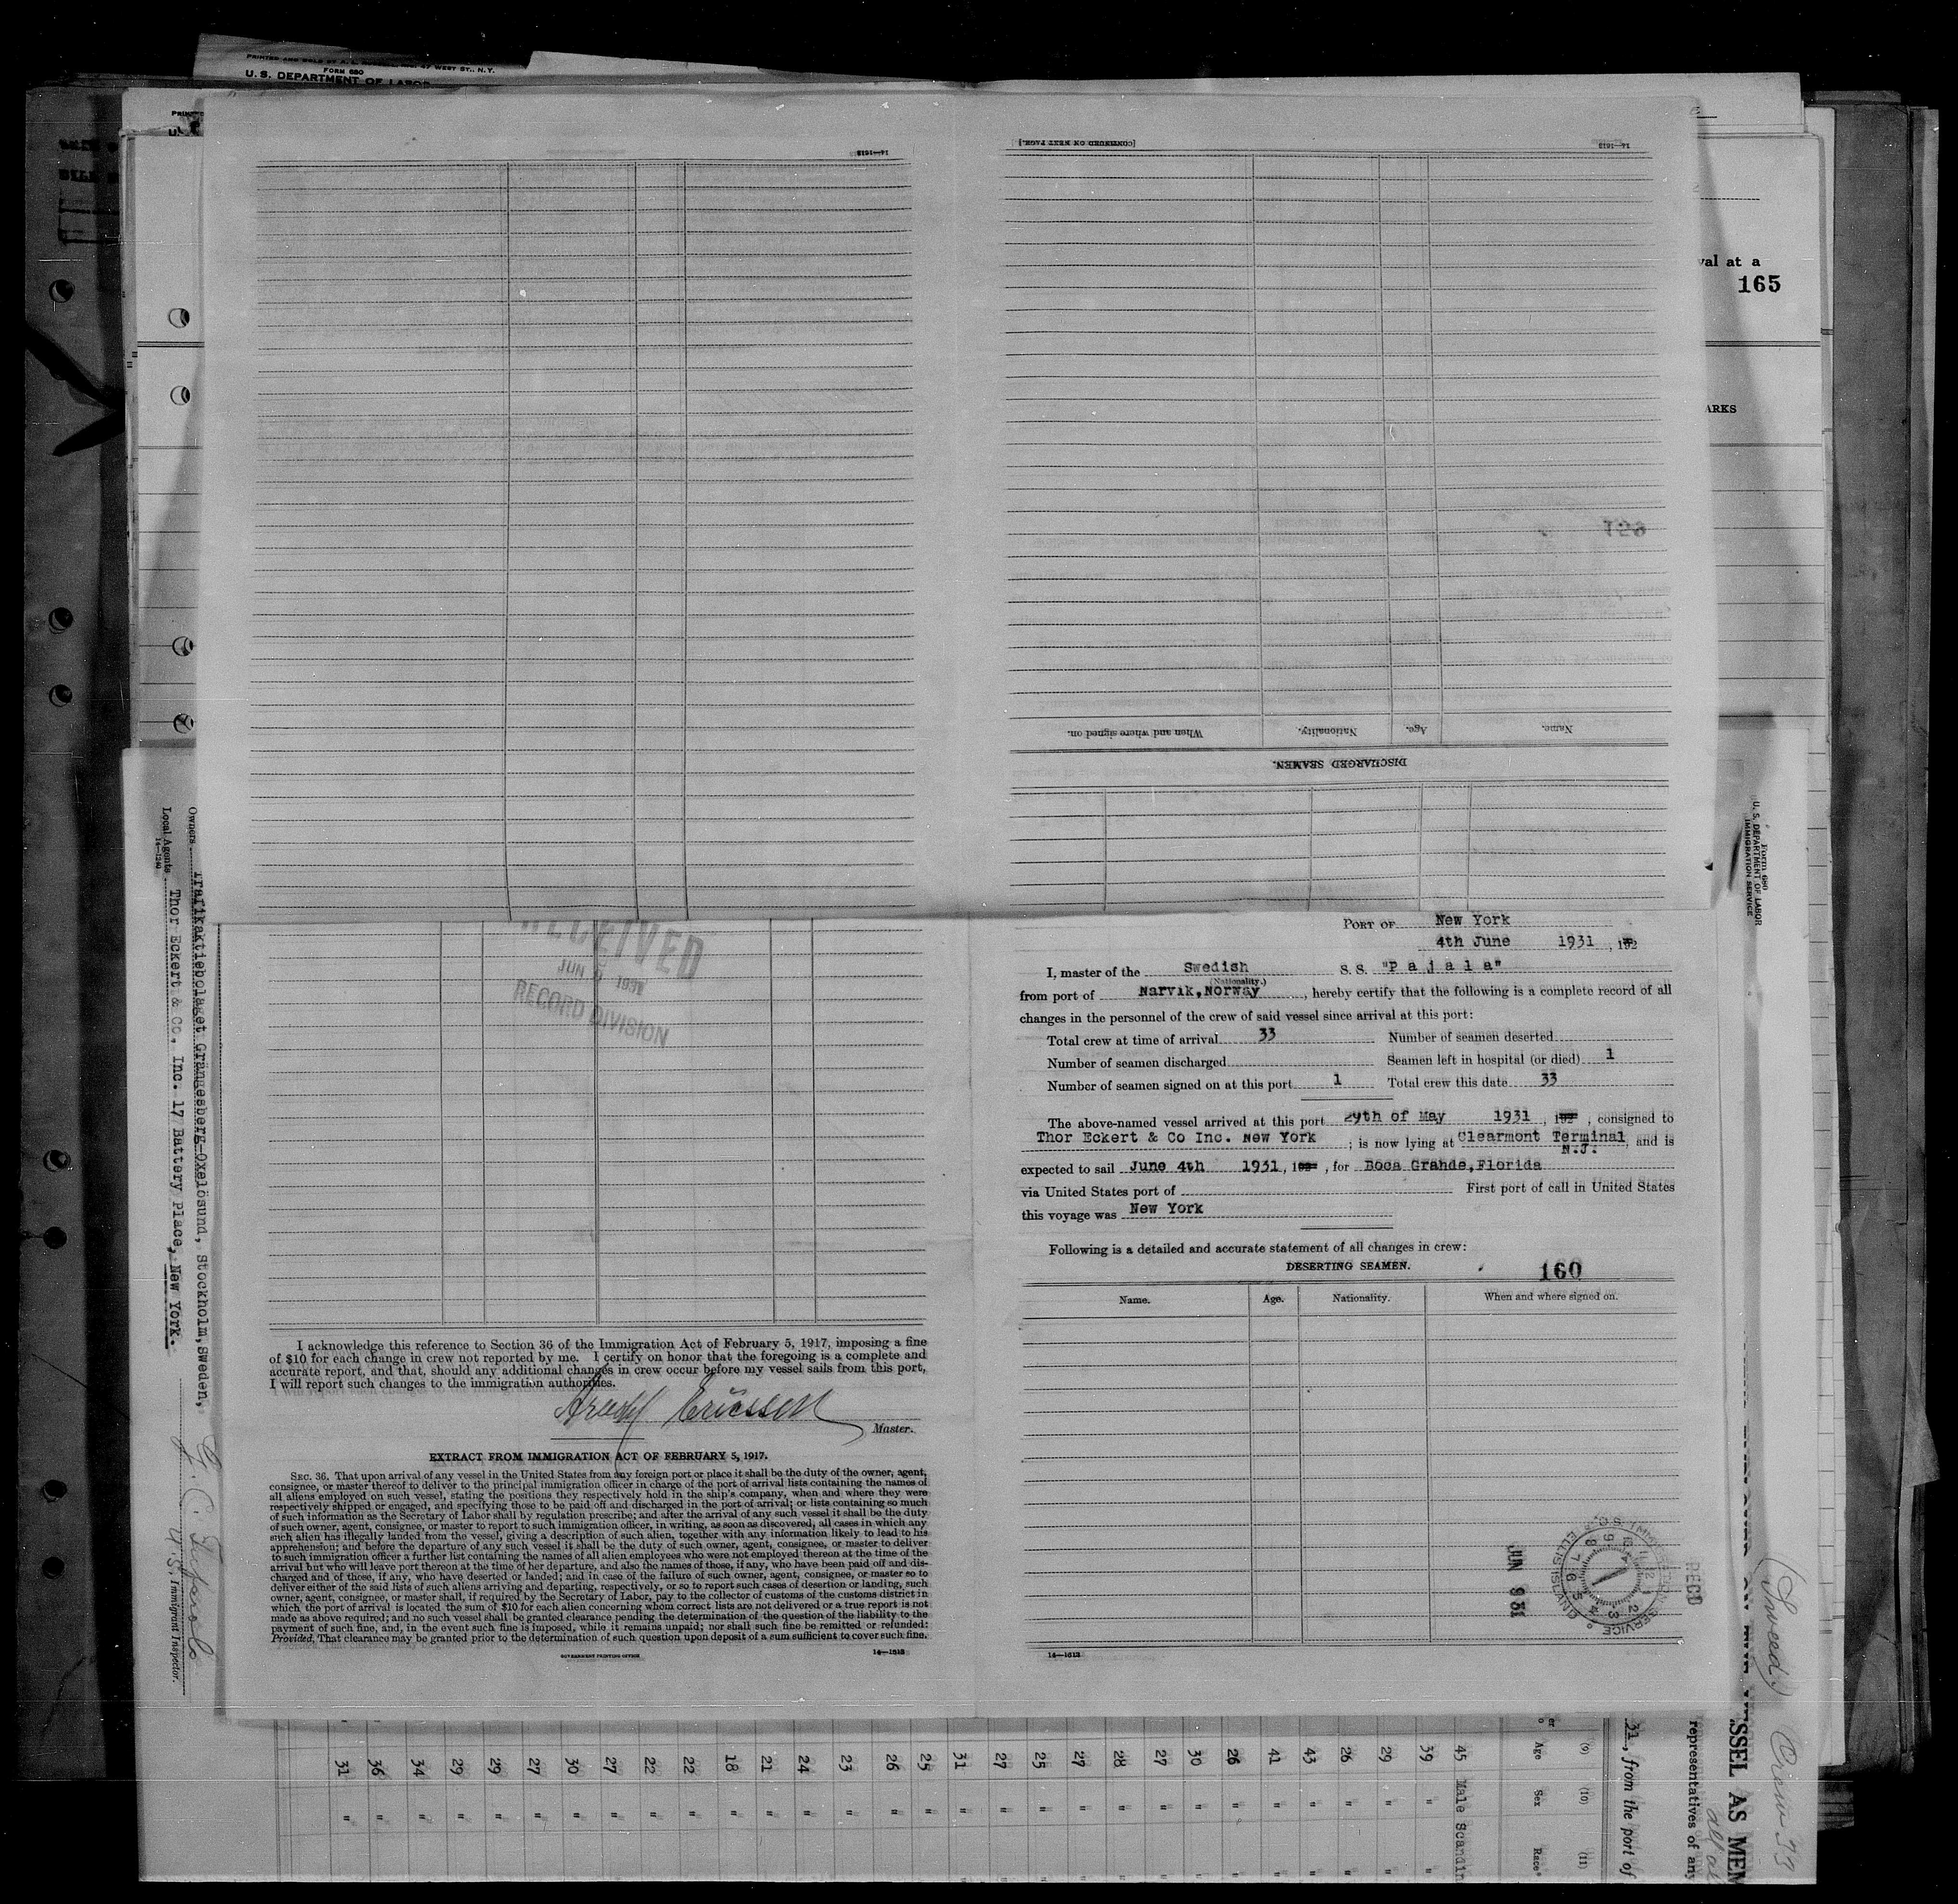 PRINTED AND SOLD BY
47 WEST ST., N.Y.
FORM 680
U. S. DEPARTMENT OF LABOR
14—1613
[CONTINUED ON NEXT PAGE.]
14—1613
val at a
165
ARKS
Name.
Age.
Nationality.
When and where signed on.
DISCHARGED SEAMEN.
Form 680
U. S. DEPARTMENT OF LABOR
IMMIGRATION SERVICE
Owners Trafikaktiebolaget Grängesberg-Oxelösund, Stockholm, Sweden,
Local Agents Thor Eckert & Co. Inc. 17 Battery Place, New York.
14—1240
U. S. Immigrant Inspector.
RECEIVED
JUN 9 1931
RECORD DIVISION
I acknowledge this reference to Section 36 of the Immigration Act of February 5, 1917, imposing a fine
of $10 for each change in crew not reported by me. I certify on honor that the foregoing is a complete and
accurate report, and that, should any additional changes in crew occur before my vessel sails from this port,
I will report such changes to the immigration authorities.
Ericsson
Master.
EXTRACT FROM IMMIGRATION ACT OF FEBRUARY 5, 1917.
SEC. 36. That upon arrival of any vessel in the United States from any foreign port or place it shall be the duty of the owner, agent,
consignee, or master thereof to deliver to the principal immigration officer in charge of the port of arrival lists containing the names of
all aliens employed on such vessel, stating the positions they respectively hold in the ship's company, when and where they were
respectively shipped or engaged, and specifying those to be paid off and discharged in the port of arrival; or lists containing so much
of such information as the Secretary of Labor shall by regulation prescribe; and after the arrival of any such vessel it shall be the duty
of such owner, agent, consignee, or master to report to such immigration officer, in writing, as soon as discovered, all cases in which any
such alien has illegally landed from the vessel, giving a description of such alien, together with any information likely to lead to his
apprehension; and before the departure of any such vessel it shall be the duty of such owner, agent, consignee, or master to deliver
to such immigration officer a further list containing the names of all alien employees who were not employed thereon at the time of the
arrival but who will leave port thereon at the time of her departure, and also the names of those, if any, who have been paid off and dis-
charged and of those, if any, who have deserted or landed; and in case of the failure of such owner, agent, consignee, or master so to
deliver either of the said lists of such aliens arriving and departing, respectively, or so to report such cases of desertion or landing, such
owner, agent, consignee, or master shall, if required by the Secretary of Labor, pay to the collector of customs of the customs district in
which the port of arrival is located the sum of $10 for each alien concerning whom correct lists are not delivered or a true report is not
made as above required; and no such vessel shall be granted clearance pending the determination of the question of the liability to the
payment of such fine, and, in the event such fine is imposed, while it remains unpaid; nor shall such fine be remitted or refunded:
Provided, That clearance may be granted prior to the determination of such question upon deposit of a sum sufficient to cover such fine.
GOVERNMENT PRINTING OFFICE
14—1613
PORT OF New York
4th June 1931, 192
I, master of the Swedish S. S. "Pajala"
(Nationality.)
from port of Narvik, Norway, hereby certify that the following is a complete record of all
changes in the personnel of the crew of said vessel since arrival at this port:
Total crew at time of arrival 33 Number of seamen deserted
Number of seamen discharged Seamen left in hospital (or died) 1
Number of seamen signed on at this port 1 Total crew this date 33
The above-named vessel arrived at this port 29th of May 1931, 192, consigned to
Thor Eckert & Co Inc. New York; is now lying at Clearmont Terminal, and is
N.J.
expected to sail June 4th 1931, 192, for Boca Grande, Florida
via United States port of First port of call in United States
this voyage was New York
Following is a detailed and accurate statement of all changes in crew:
DESERTING SEAMEN.
160
Name. Age. Nationality. When and where signed on.
14—1613
U.S. IMMIGRATION SERVICE
ELLIS ISLAND
REC'D
JUN 9 31
(Sweed.) Crew 33
SSEL AS MEN
representatives of any
31, from the port of
(9) (10) (11)
Age Sex Race*
45 Male Scandin
39 " "
29 " "
26 " "
43 " "
41 " "
26 " "
30 " "
27 " "
28 " "
27 " "
25 " "
27 " "
31 " "
25 " "
26 " "
23 " "
24 " "
21 " "
18 " "
22 " "
22 " "
27 " "
30 " "
27 " "
29 " "
29 " "
34 " "
36 " "
31 "